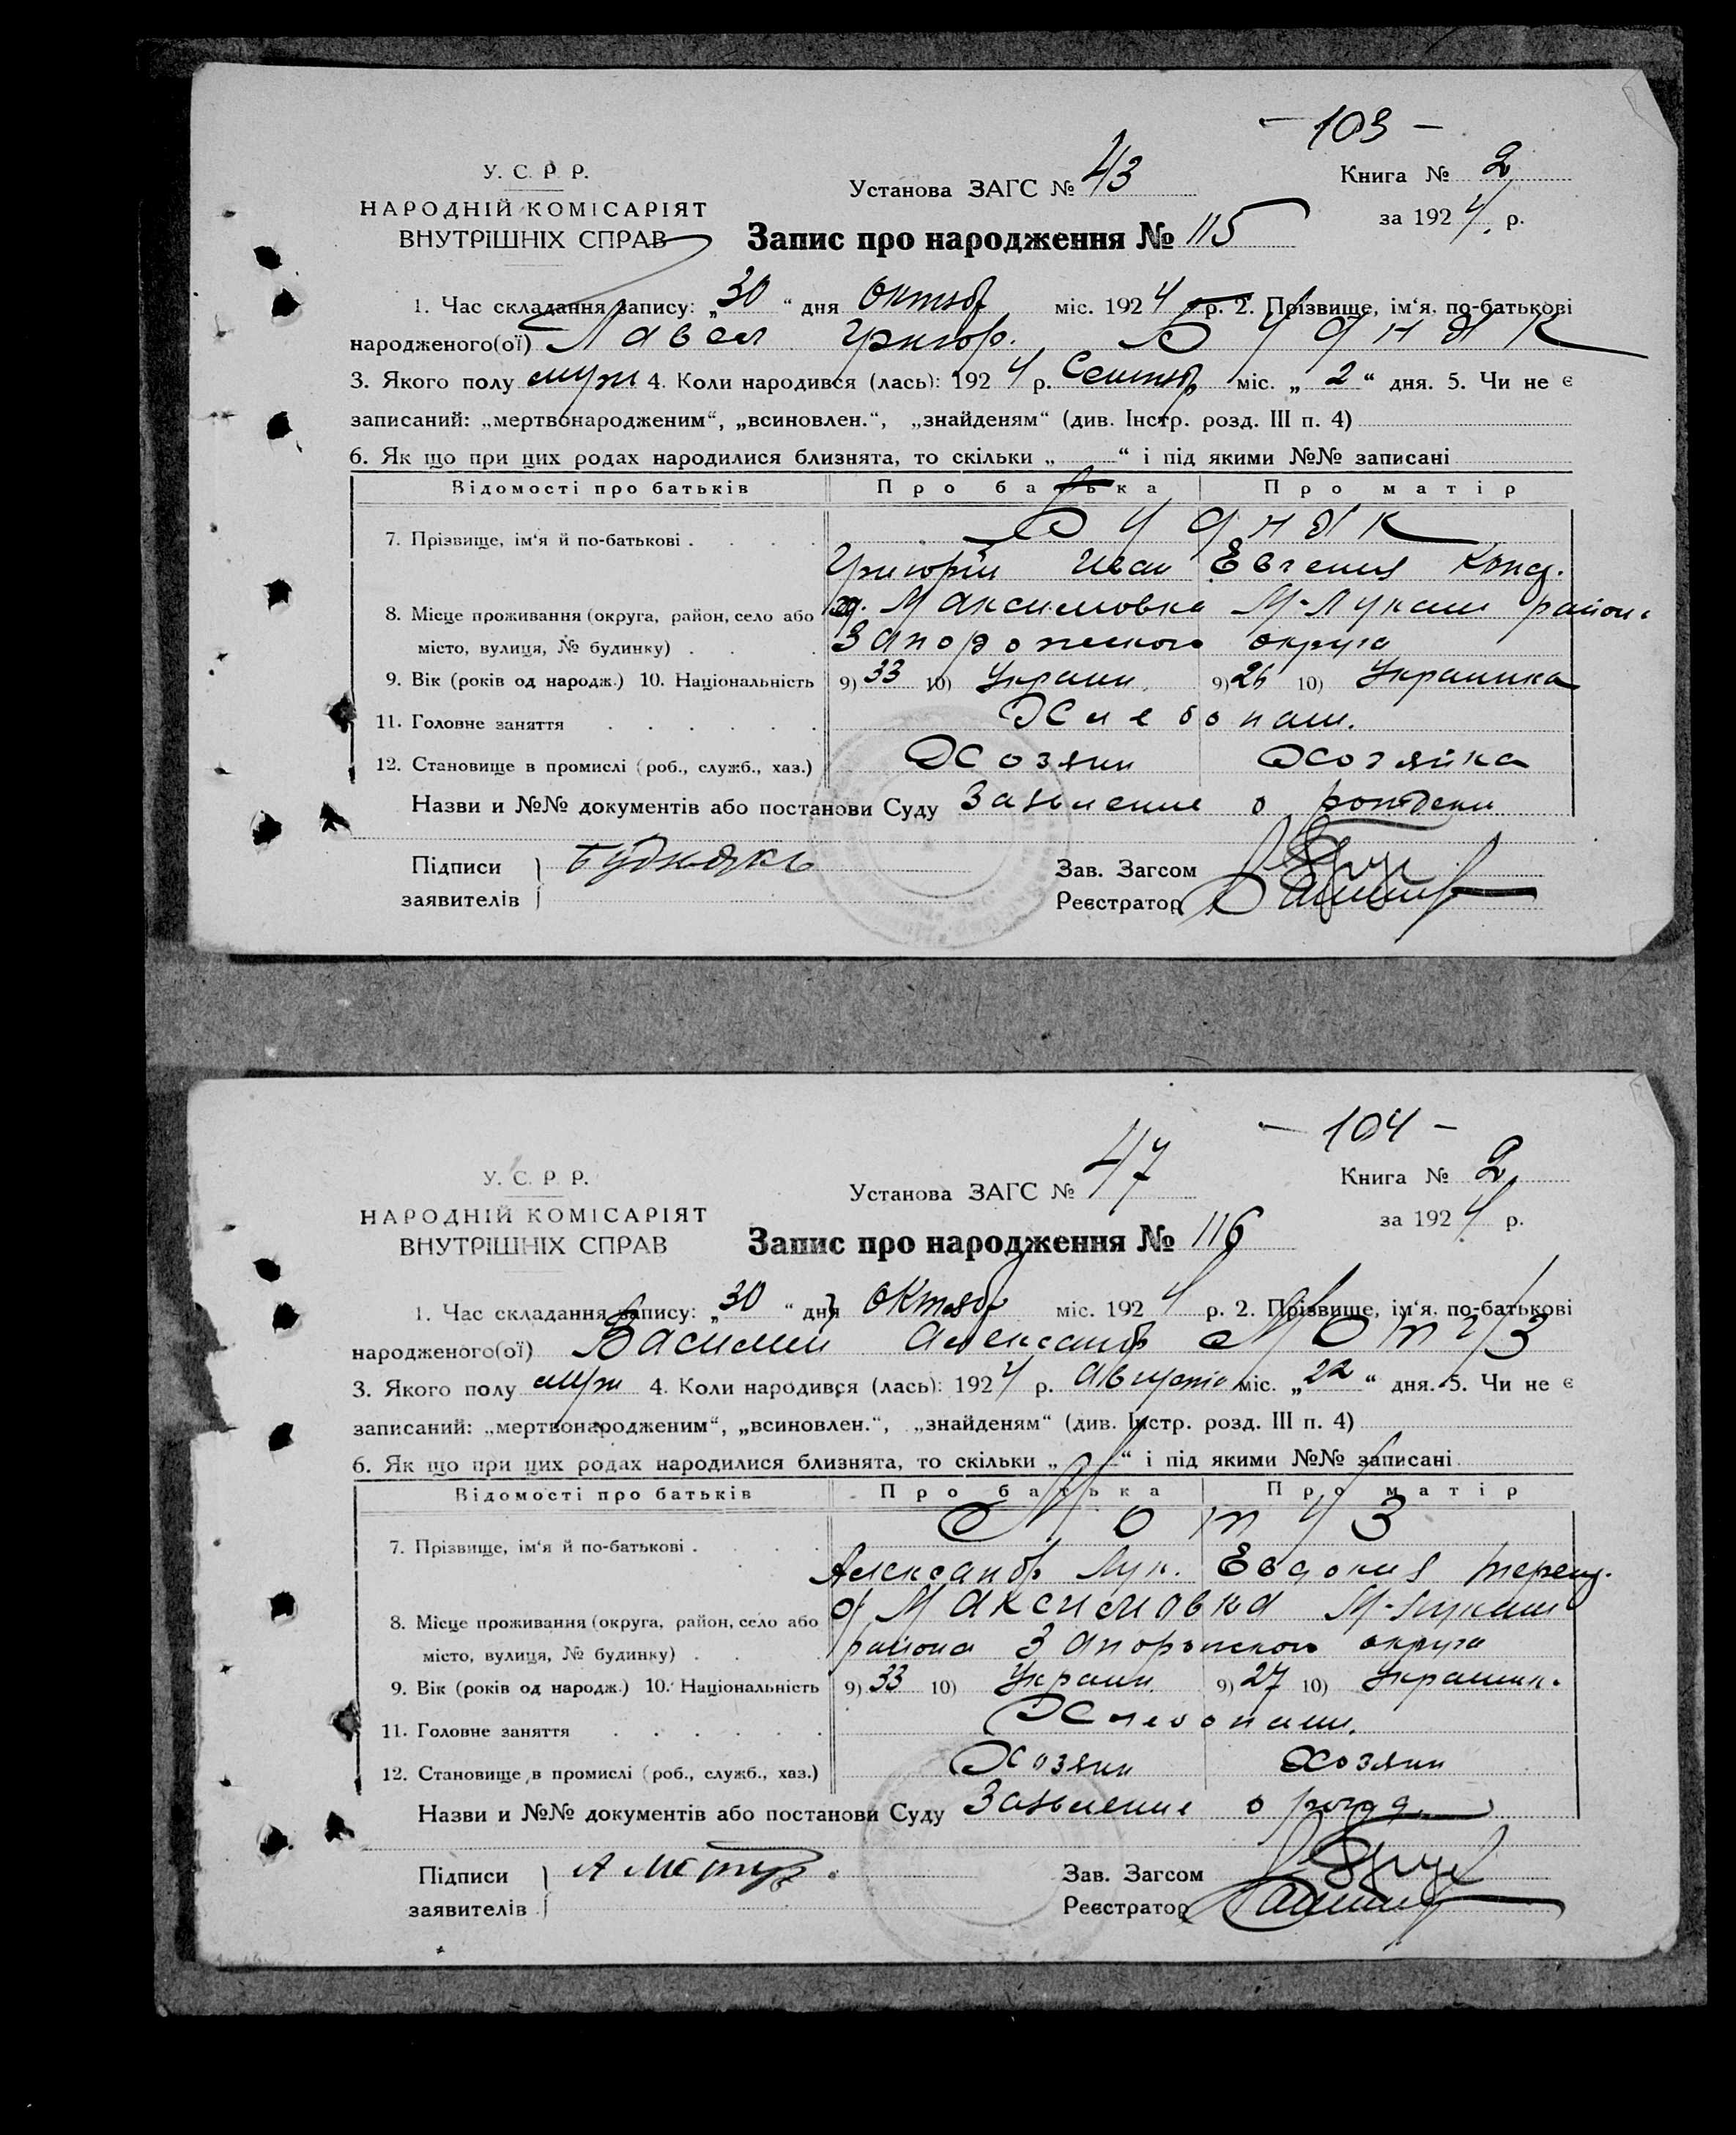 - 103 -
У. С. Р. Р.
НАРОДНІЙ КОМІСАРІЯТ
ВНУТРІШНІХ СПРАВ
Установа ЗАГС № 43
Книга № 2
за 1924 р.
Запис про народження № 115
1. Час складання запису: „30“ дня Октяб міс. 1924 р. 2. Прізвище, ім‘я, по-батькові
народженого(ої) Павел Григор. Будняк
3. Якого полу муж 4. Коли народився (лась): 1924 р. Сентяб міс. „2“ дня. 5. Чи не є
записаний: „мертвонародженим“, „всиновлен.“, „знайденям“ (див. Інстр. розд. III п. 4)
6. Як що при цих родах народилися близнята, то скільки „ “ і під якими №№ записані
Відомості про батьків Про батька Про матір
7. Прізвище, ім‘я й по-батькові . Будняк
Григорій Иван Евгения Конд.
8. Місце проживання (округа, район, село або Максимовка М-Лукаш района
місто, вулиця, № будинку) . Запорожского округа
9. Вік (років од народж.) 10. Національність 9) 33 10) Украин. 9) 26 10) Украинка
11. Головне заняття Хлебопаш.
12. Становище в промислі (роб., служб., хаз.) Хозяин Хозяйка
Назви и №№ документів або постанови Суду Заявление о рождени
Підписи Буднякъ
заявителів
Зав. Загсом
Реєстратор
- 104 -
У. С. Р. Р.
НАРОДНІЙ КОМІСАРІЯТ
ВНУТРІШНІХ СПРАВ
Установа ЗАГС № 47
Книга № 2
за 1924 р.
Запис про народження № 116
1. Час складання запису: „30“ дня Октяб міс. 1924 р. 2. Прізвище, ім‘я, по-батькові
народженого(ої) Василий Александ Мотуз
3. Якого полу муж 4. Коли народився (лась): 1924 р. Августа міс. „22“ дня. 5. Чи не є
записаний: „мертвонародженим“, „всиновлен.“, „знайденям“ (див. Інстр. розд. III п. 4)
6. Як що при цих родах народилися близнята, то скільки „ “ і під якими №№ записані
Відомості про батьків Про батька Про матір
7. Прізвище, ім‘я й по-батькові . Мотуз
Александр Лук. Евдокия Терещ.
8. Місце проживання (округа, район, село або Максимовка М-Лукаш
місто, вулиця, № будинку) . района Запорожского округа
9. Вік (років од народж.) 10. Національність 9) 33 10) Украин. 9) 27 10) Украинк.
11. Головне заняття Хлебопаш.
12. Становище в промислі (роб., служб., хаз.) Хозяин Хозяин
Назви и №№ документів або постанови Суду Заявление о рожд.
Підписи А Мотуз
заявителів
Зав. Загсом
Реєстратор